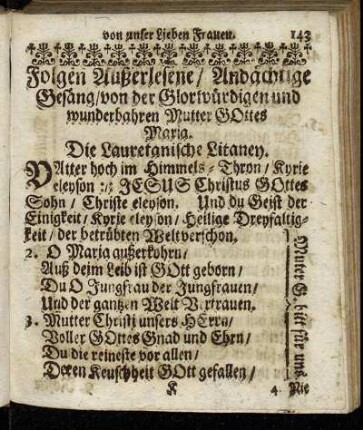 von unser Lieben Frauen. 143
Folgen Außerlesene / Andächtige
Gesäng / von der Glorwürdigen und
wunderbahren Mutter GOttes
Maria.
Die Lauretanische Litaney.
VAtter hoch im Himmels-Thron / Kyrie
eleyson :/: JESUS Christus GOttes
Sohn / Christe eleyson. Und du Geist der
Einigkeit / Kyrie eleyson / Heilige Dreyfaltig-
keit / der betrübten Welt verschon.
2. O Maria außerkohrn /
Auß deim Leib ist GOtt geborn /
Du O Jungfrau der Jungfrauen /
Und der gantzen Welt Vertrauen.
3. Mutter Christi unsers HErrn /
Voller GOttes Gnad und Ehrn /
Du die reineste vor allen /
Deren Keuschheit GOtt gefallen /
Muter G. bitt für uns
K 4. Die